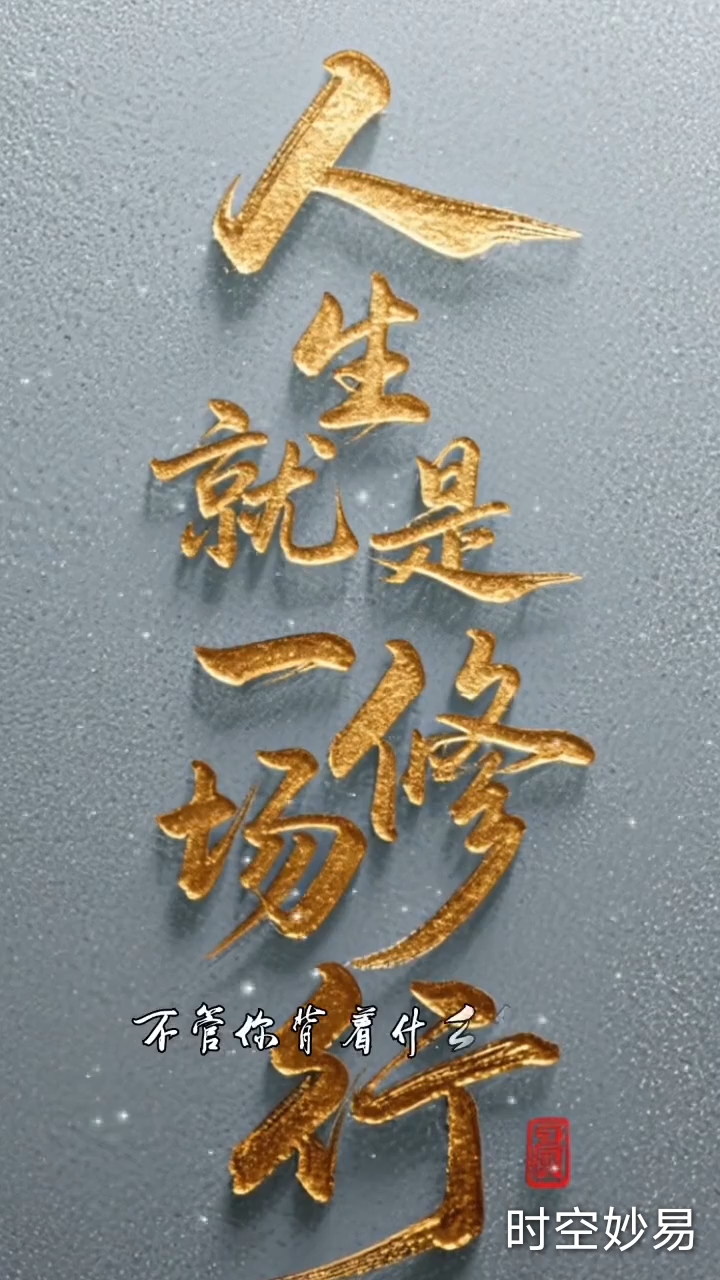 人生
就是
一场
修行
不管你背着什么
时空妙易